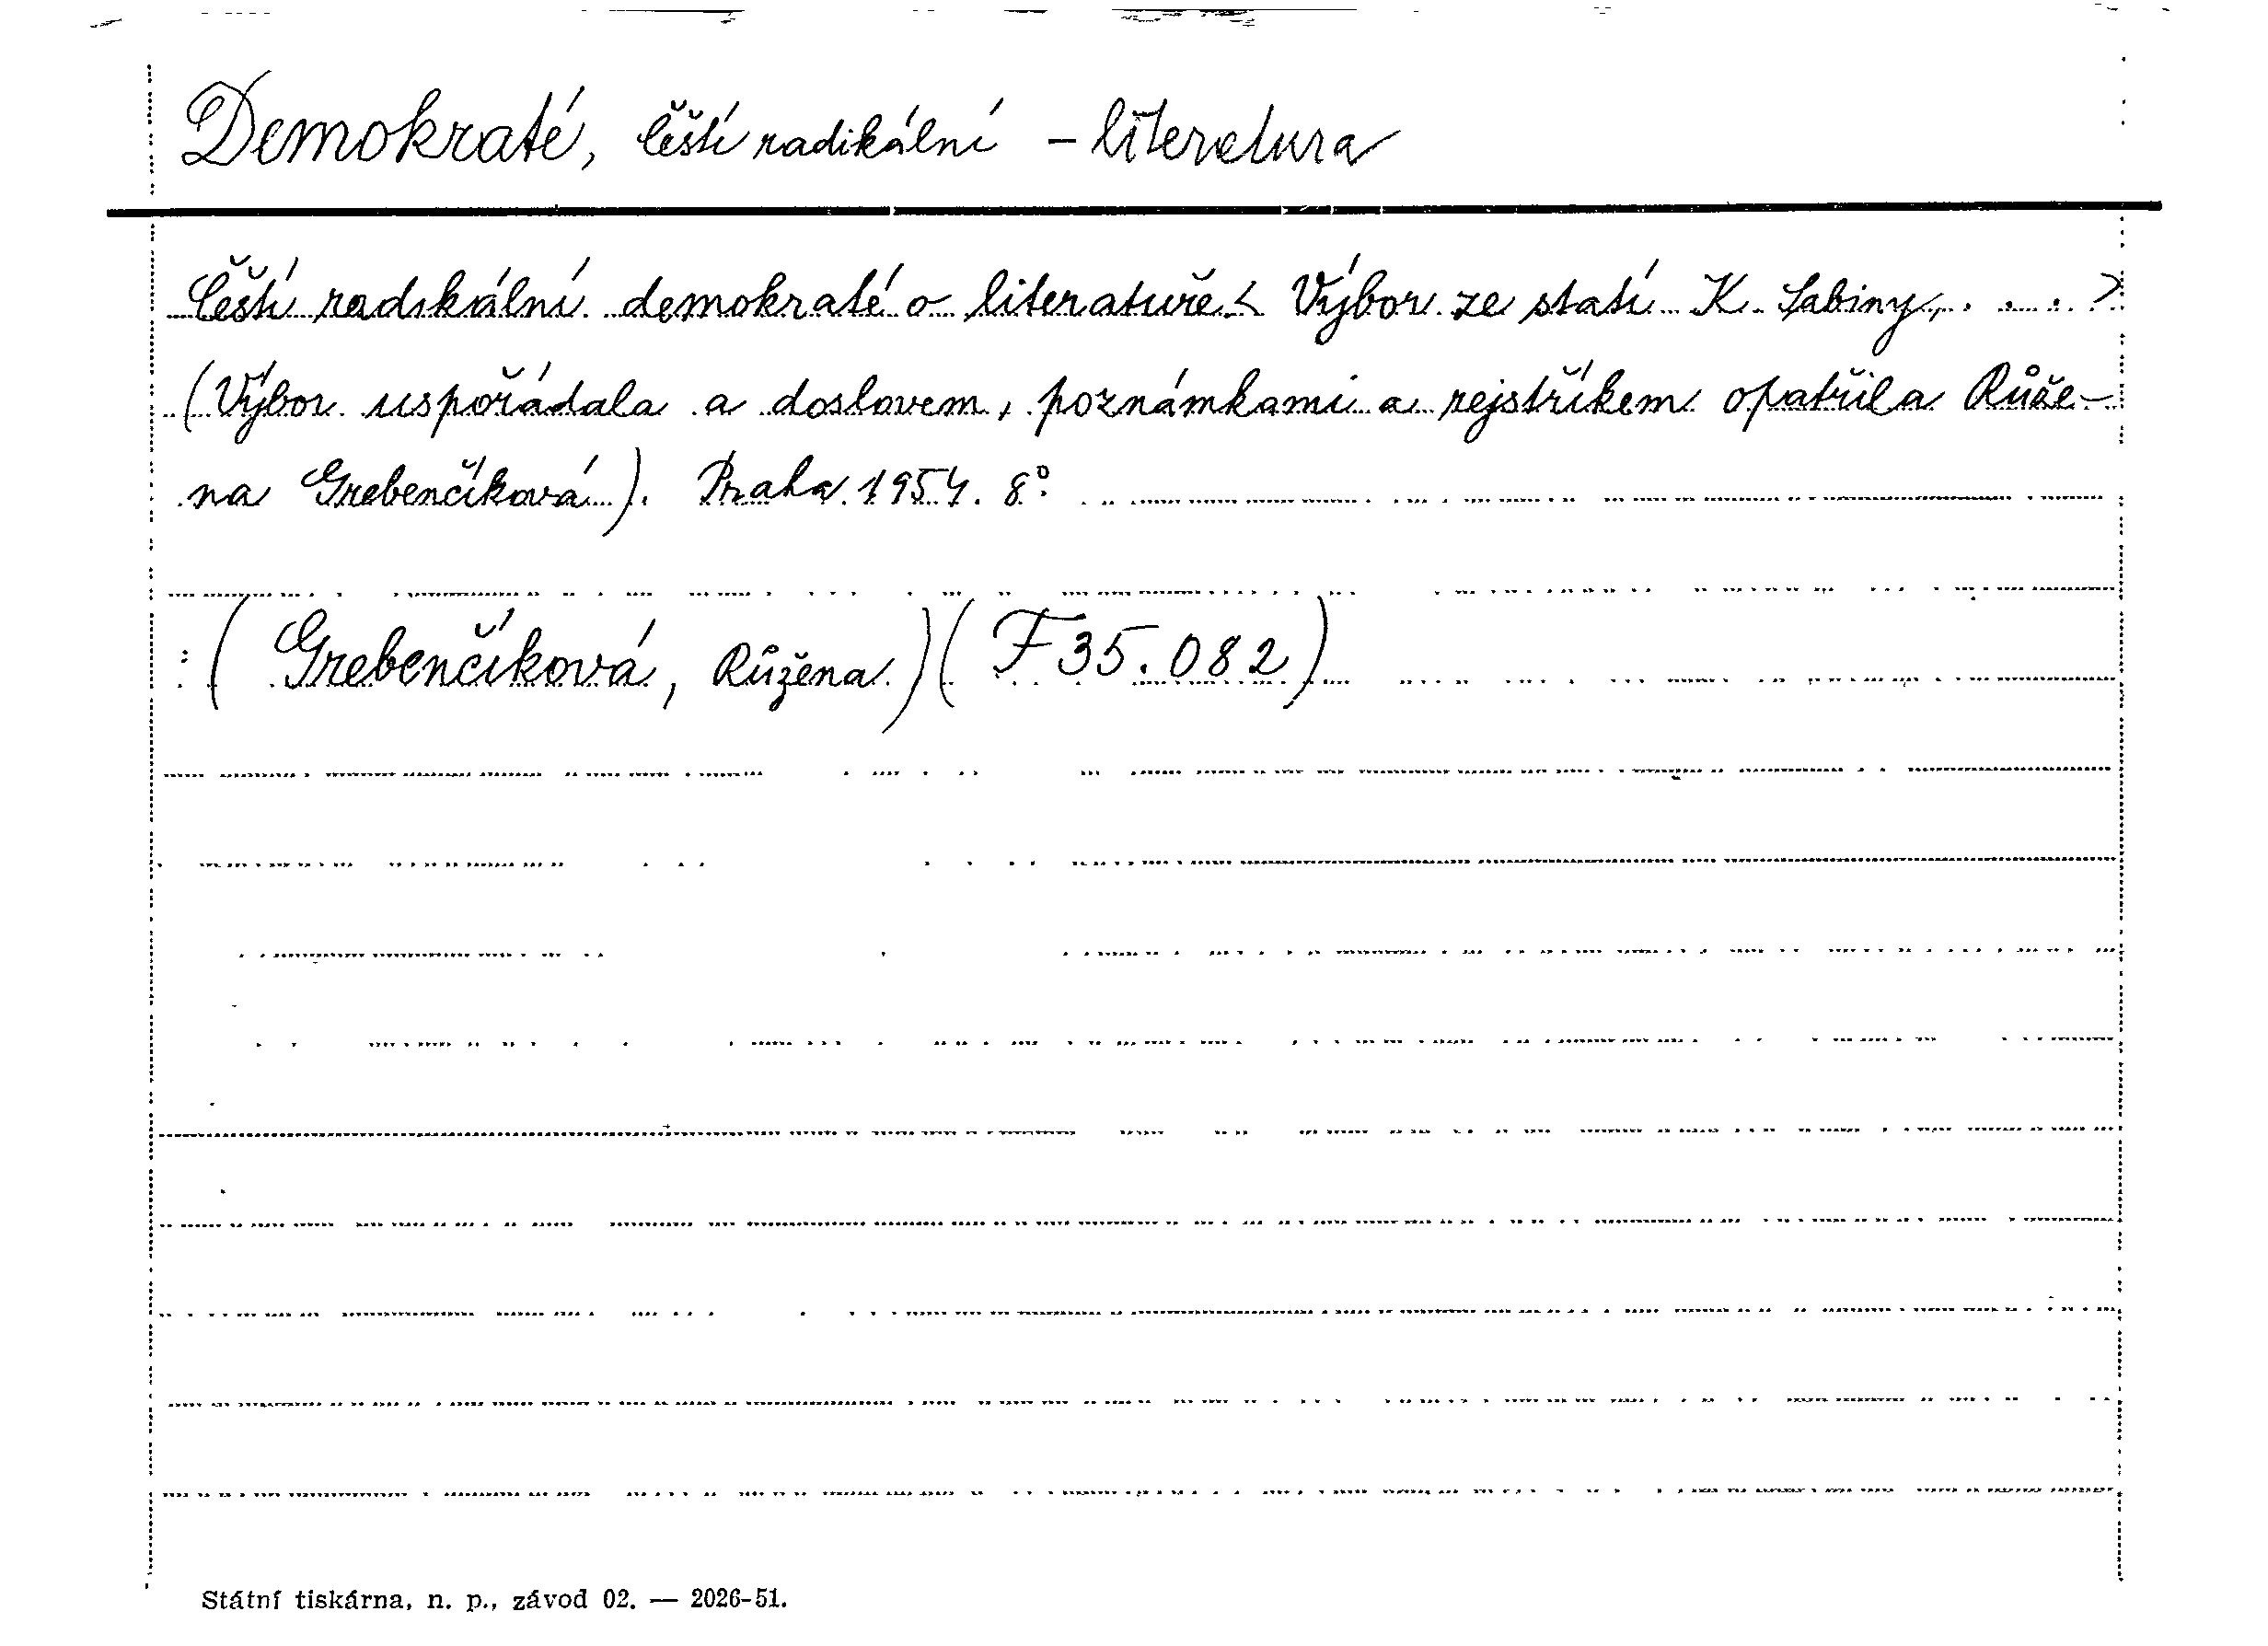 Demokraté, čeští radikální – literatura
Čeští radikální demokraté o literatuře < Výbor ze statí K. Sabiny, . . . . >
(Výbor uspořádala a doslovem, poznámkami a rejstříkem opatřila Růže-
na Grebeníčková). Praha 1954. 8°.
: (Grebeníčková, Růžena) (F 35.082)
Státní tiskárna, n. p., závod 02. — 2026-51.